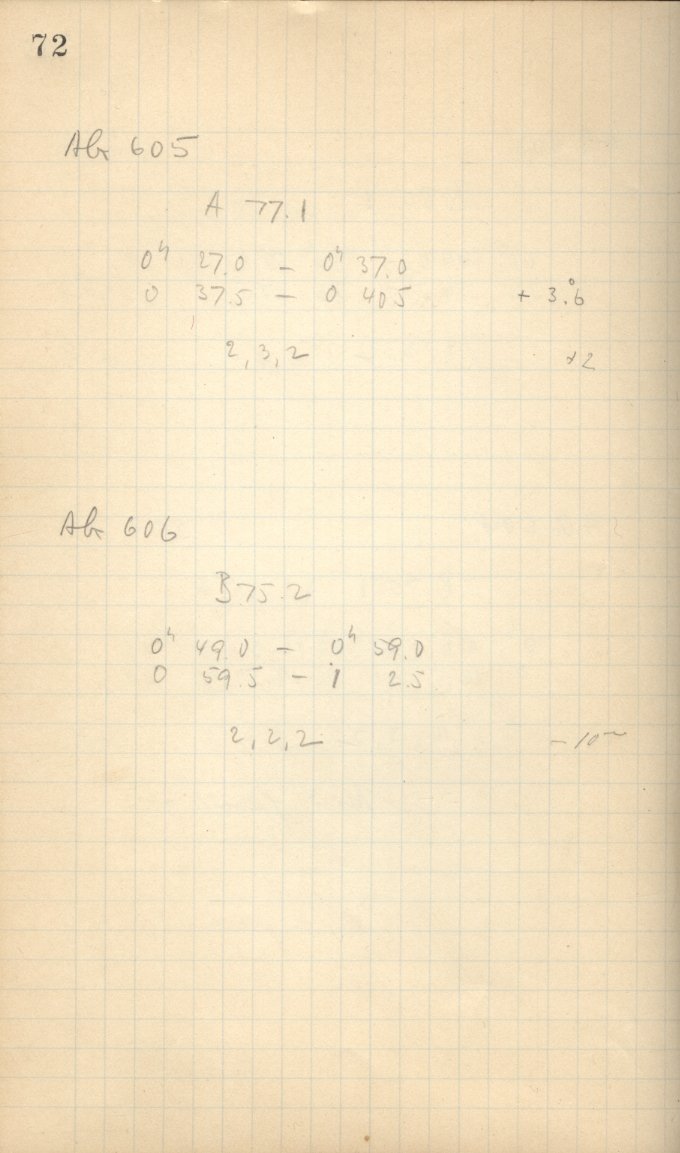 72
Abr 605
A 77.1
0ʰ 27.0 – 0ʰ 37.0
0 37.5 – 0 40.5 + 3.°6
2, 3, 2 +2
Abr 606
B 75.2
0ʰ 49.0 – 0ʰ 59.0
0 59.5 – 1 2.5
2, 2, 2 – 10ᵐ